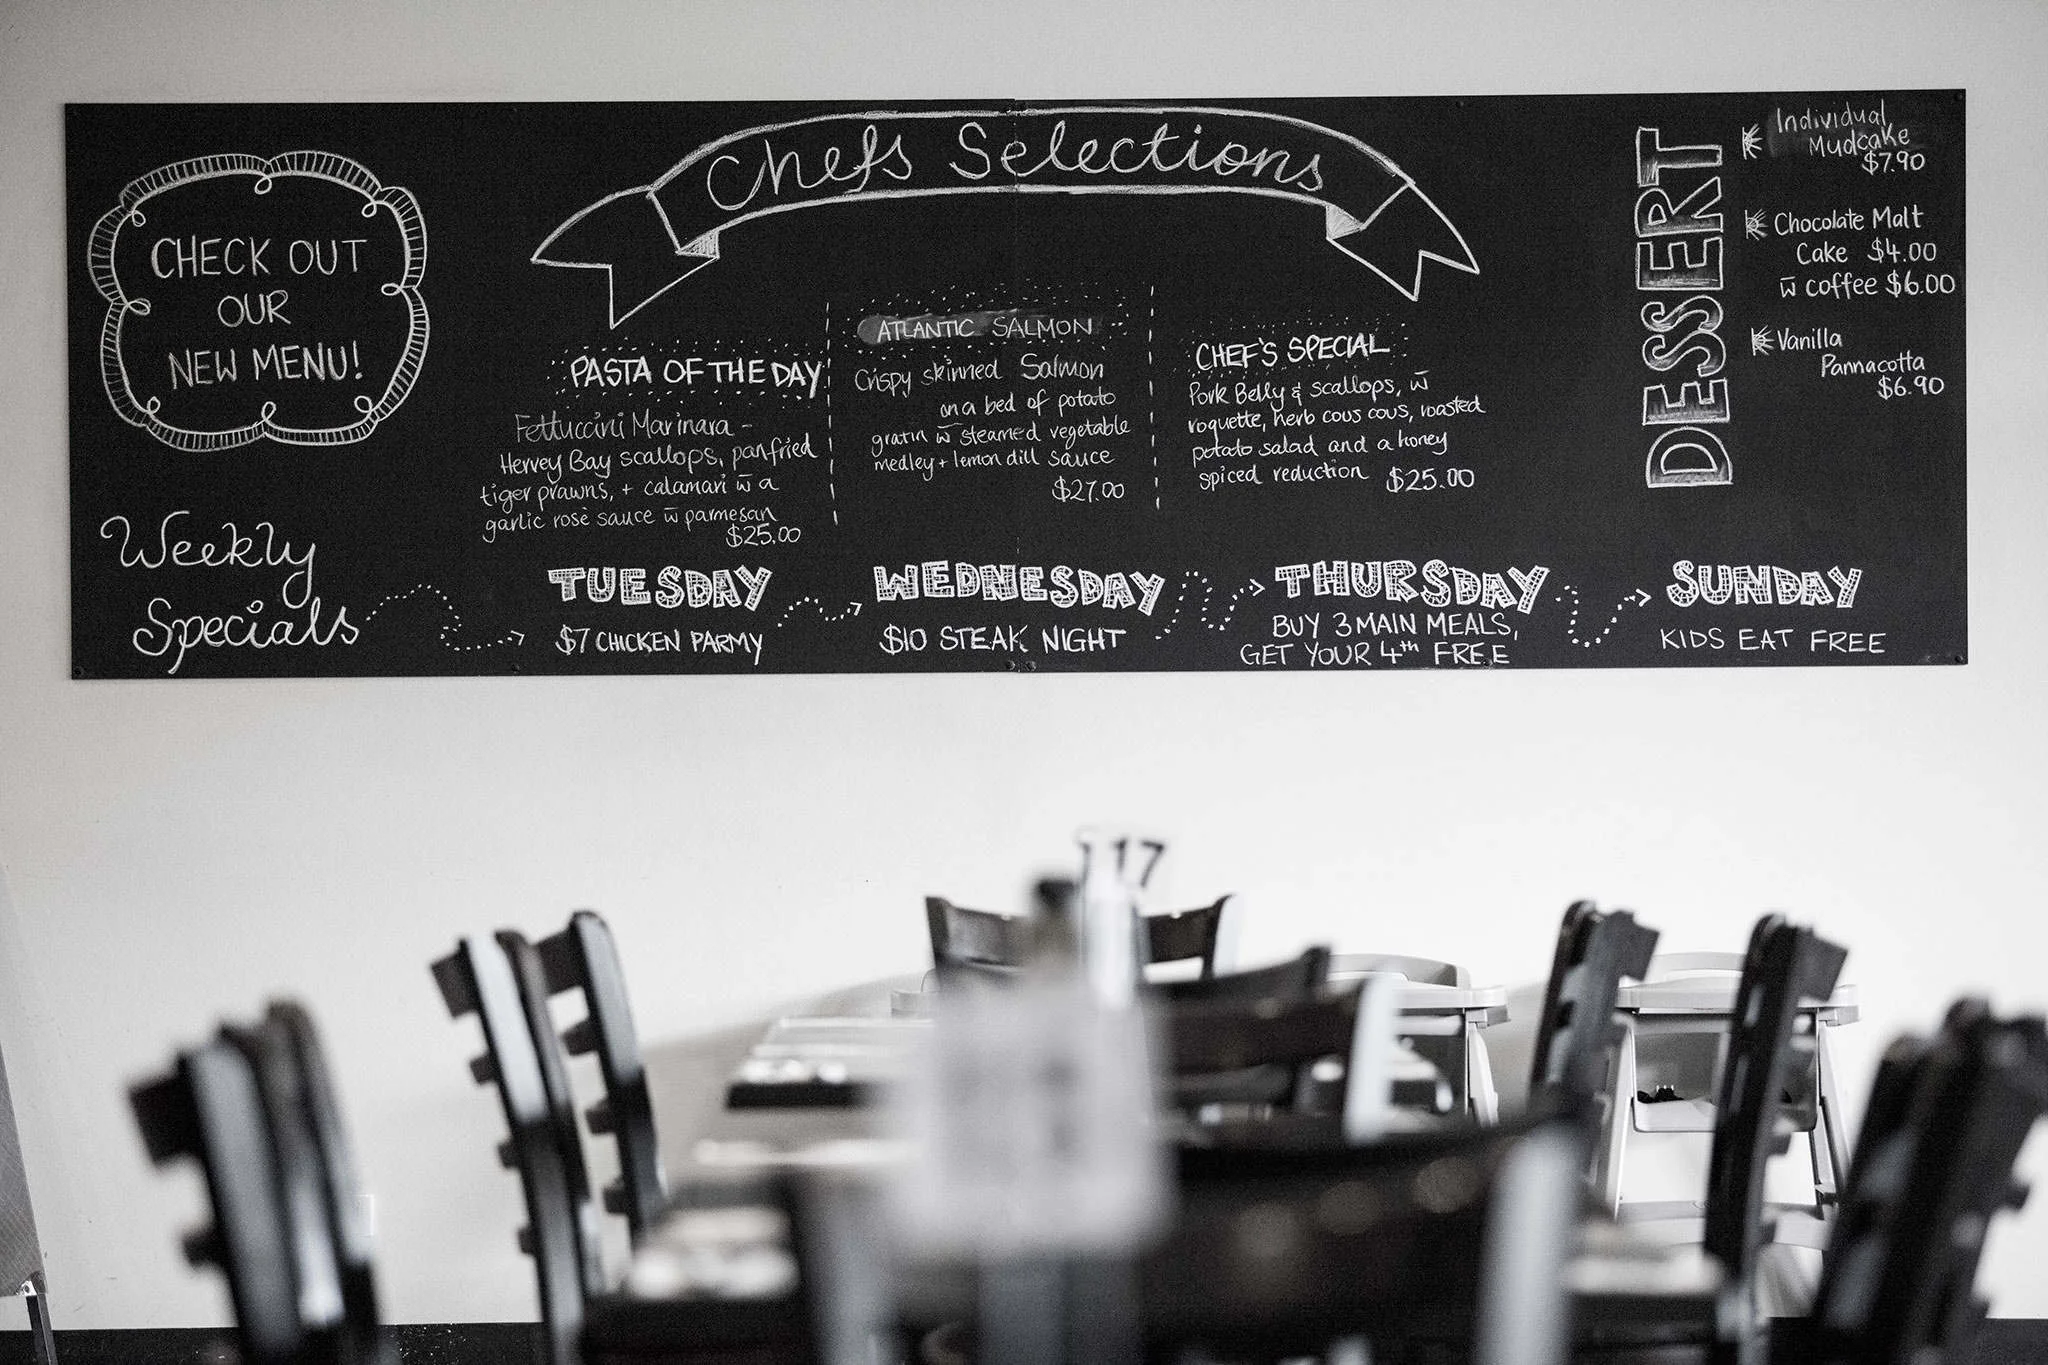 CHECK OUT
OUR
NEW MENU!
Chefs Selections
PASTA OF THE DAY
Fettuccini Marinara -
Hervey Bay scallops, panfried
tiger prawns, + calamari w̄ a
garlic rosè sauce w̄ parmesan
$25.00
ATLANTIC SALMON
Crispy skinned Salmon
on a bed of potato
gratin w̄ steamed vegetable
medley + lemon dill sauce
$27.00
CHEF'S SPECIAL
Pork Belly & scallops, w̄
roquette, herb cous cous, roasted
potato salad and a honey
spiced reduction $25.00
DESSERT
Individual
Mudcake
$7.90
Chocolate Malt
Cake $4.00
w̄ coffee $6.00
Vanilla
Pannacotta
$6.90
Weekly
Specials
TUESDAY
$7 CHICKEN PARMY
WEDNESDAY
$10 STEAK NIGHT
THURSDAY
BUY 3 MAIN MEALS,
GET YOUR 4th FREE
SUNDAY
KIDS EAT FREE
17